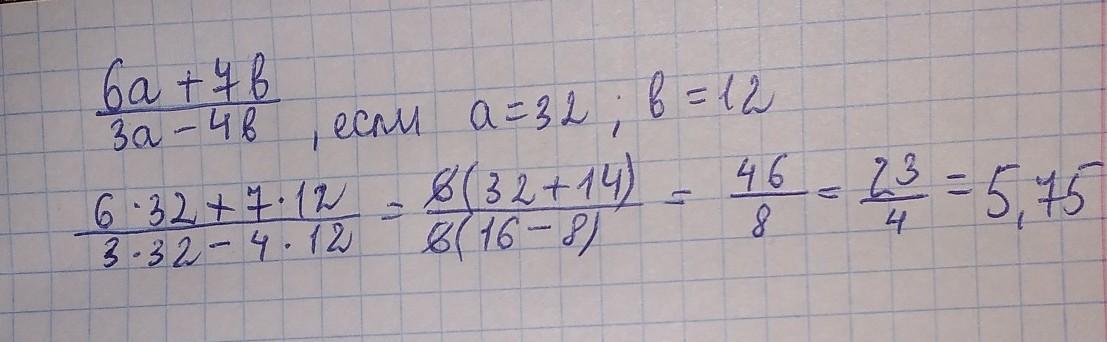 (6a + 7b)/(3a − 4b), если a = 32; b = 12
(6·32 + 7·12)/(3·32 − 4·12) = 6(32 + 14)/6(16 − 8) = 46/8 = 23/4 = 5,75